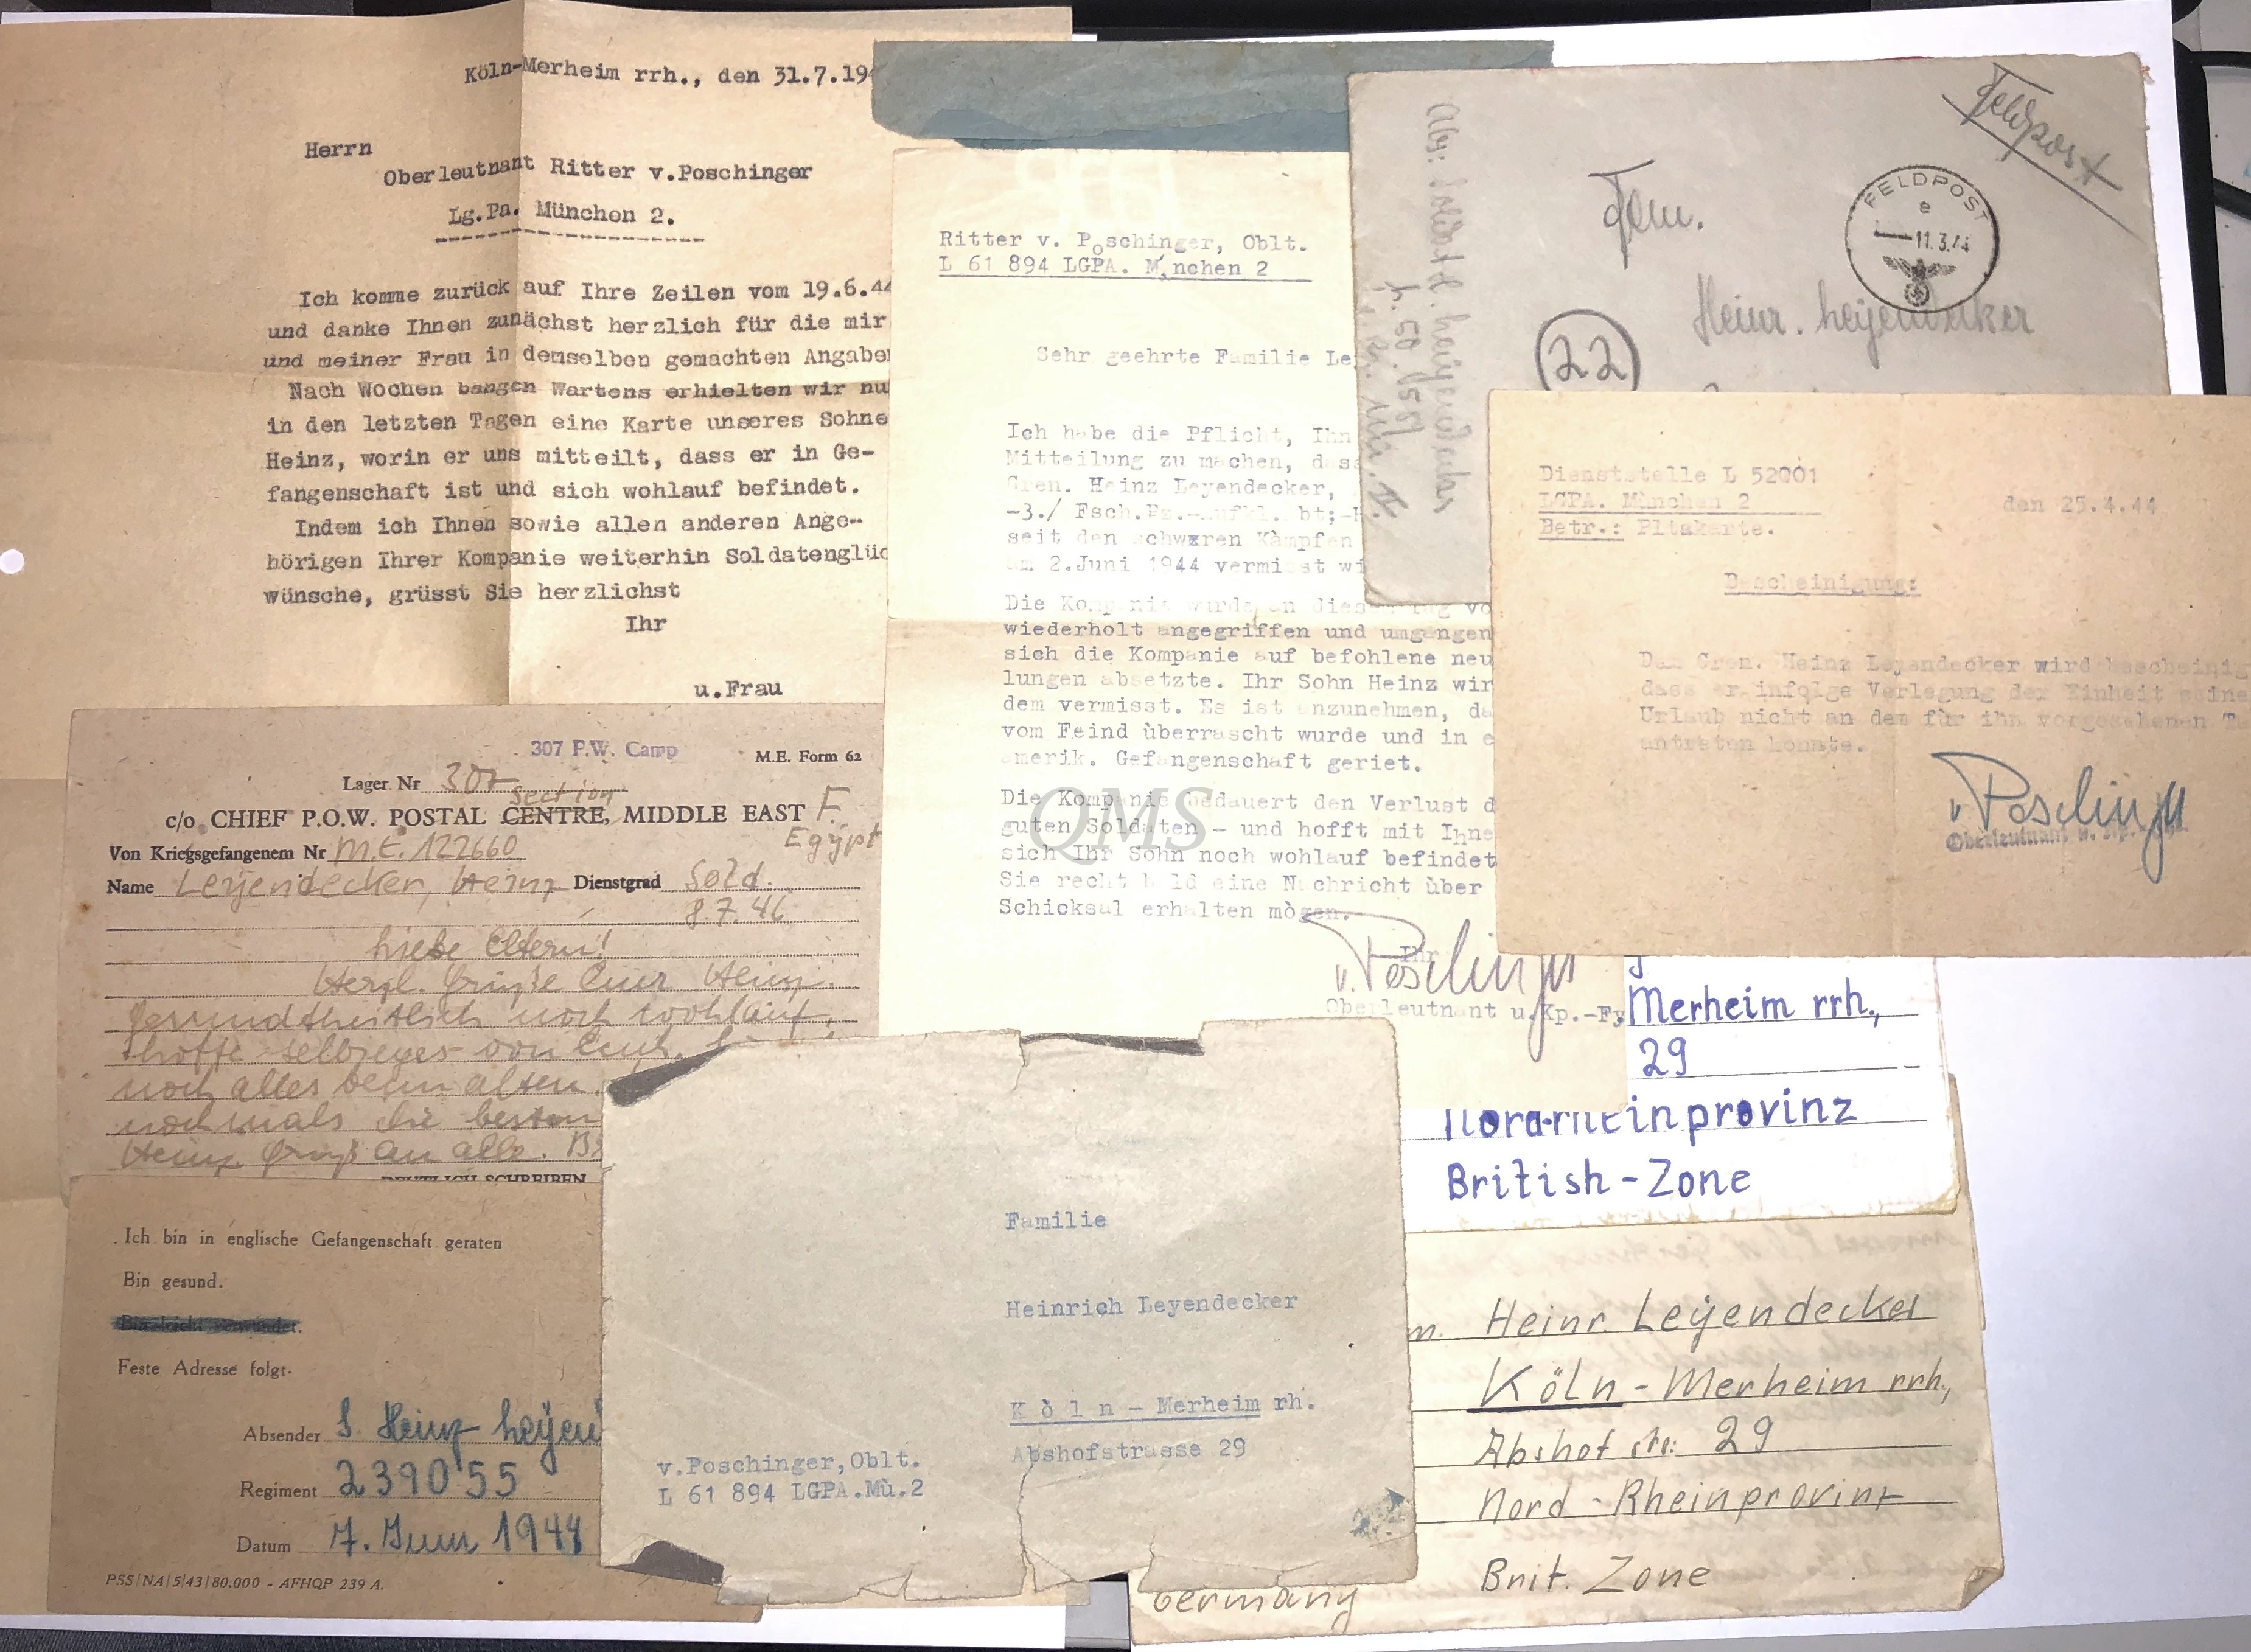 Köln-Merheim rrh., den 31.7.19
Herrn
Oberleutnant Ritter v.Poschinger
Lg.Pa. München 2.
Ich komme zurück auf Ihre Zeilen vom 19.6.44
und danke Ihnen zunächst herzlich für die mir
und meiner Frau in demselben gemachten Angabe
Nach Wochen bangen Wartens erhielten wir nu
in den letzten Tagen eine Karte unseres Sohne
Heinz, worin er uns mitteilt, dass er in Ge-
fangenschaft ist und sich wohlauf befindet.
Indem ich Ihnen sowie allen anderen Ange-
hörigen Ihrer Kompanie weiterhin Soldatenglüc
wünsche, grüsst Sie herzlichst
Ihr
u.Frau
307 P.W. Camp
M.E. Form 62
Lager Nr 307
Section
c/o CHIEF P.O.W. POSTAL CENTRE, MIDDLE EAST F.
Egypt
Von Kriegsgefangenem Nr M.E. 122660
Name Leyendecker, Heinz Dienstgrad Sold.
8.7.46
Liebe Eltern!
Herzl. Grüße Euer Heinz.
Gesundheitlich noch wohlauf,
hoffe selbiges von Euch.
noch alles beim alten.
nochmals die besten
Heinz Gruß an alle.
DEUTLICH SCHREIBEN
Ich bin in englische Gefangenschaft geraten
Bin gesund.
Bin leicht verwundet.
Feste Adresse folgt.
Absender S. Heinz Leyen
Regiment 239055
Datum 7. Juni 1944
PSS/NA/5/43/80.000 - AFHQP 239 A.
Ritter v. Poschinger, Oblt.
L 61 894 LGPA. München 2
Sehr geehrte Familie Le
Ich habe die Pflicht, Ihn
Mitteilung zu machen, dass
Gren. Heinz Leyendecker,
-3./ Fsch.Pz.-Aufkl. bt;-
seit den schweren Kàmpfen
am 2.Juni 1944 vermisst wi
Die Kompanie wurde an diesem Tag vo
wiederholt angegriffen und umgangen
sich die Kompanie auf befohlene neu
lungen absetzte. Ihr Sohn Heinz wir
dem vermisst. Es ist anzunehmen, da
vom Feind ùberrascht wurde und in e
amerik. Gefangenschaft geriet.
Die Kompanie bedauert den Verlust d
guten Soldaten - und hofft mit Ihne
sich Ihr Sohn noch wohlauf befindet
Sie recht bald eine Nachricht ùber
Schicksal erhalten mògen.
Ihr
v. Poschinger
Oberleutnant u.Kp.-F
QMS
Feldpost
FELDPOST
e
11.3.44
Fam.
Heinr. Leyendecker
22
Abs: Soldat H. Leyendecker
Dienststelle L 52001
LGPA. Mùnchen 2
den 25.4.44
Betr.: Pltakarte.
Bescheinigung:
Dem Gren. Heinz Leyendecker wird bescheinig
dass er infolge Verlegung der Einheit seine
Urlaub nicht an dem für ihn vorgesehenen T
antreten konnte.
v. Poschinger
Oberleutnant u.
Merheim rrh.,
29
Nordrheinprovinz
British-Zone
Familie
Heinrich Leyendecker
K ò l n - Merheim rh.
Abshofstrasse 29
v.Poschinger,Oblt.
L 61 894 LGPA.Mù.2
m. Heinr. Leyendecker
Köln - Merheim rrh.,
Abshof str: 29
Nord - Rheinprovinz
Brit. Zone
Germany